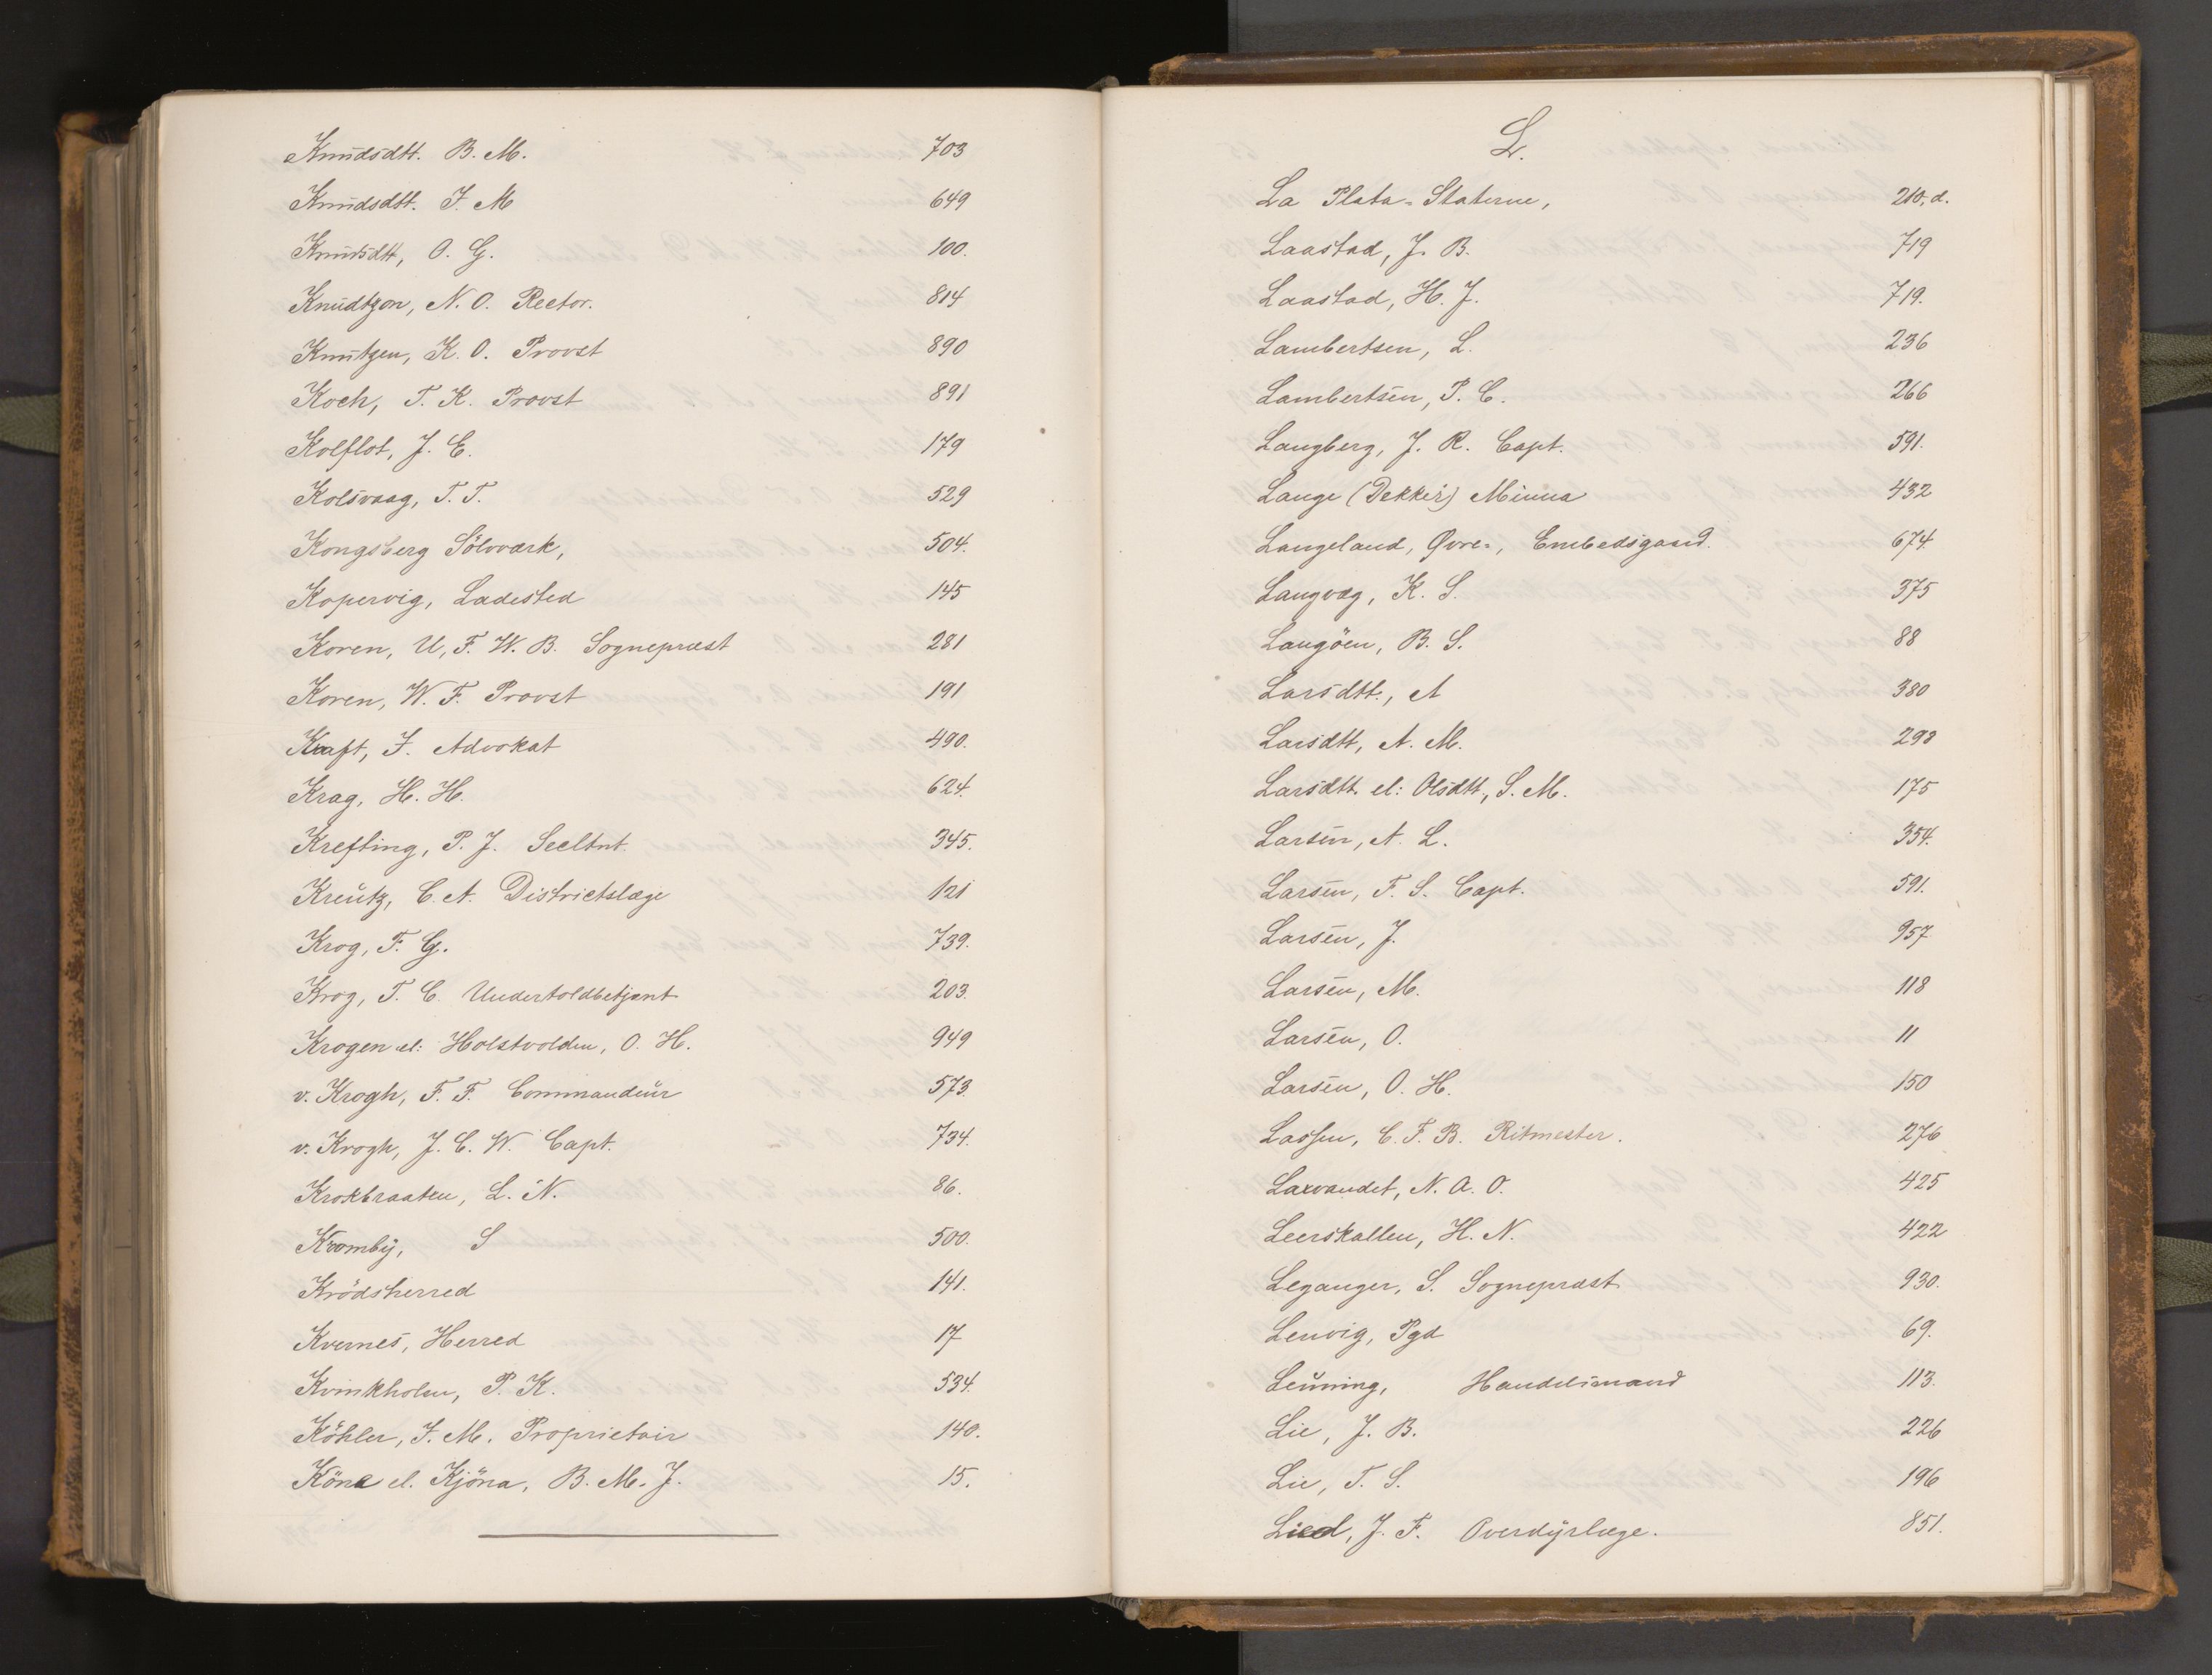 Knudsdtt. B. M. 703
Knudsdtt. I. M 649
Knudsdtt, O. G. 100.
Knudtzon, N. O. Rector. 814
Knutzen, K. O. Provst 890
Koch, T. K. Provst 891
Kolflot, J. E. 179
Kolsvaag, T. T. 529
Kongsberg Sölvværk, 504.
Kopervig, Ladested 145
Koren, U, F. W. B. Sognepræst 281
Koren, W. F. Provst 191
Kraft, I. Advokat 490.
Krag, H. H. 624.
Krefting, P. J. Secltnt. 345.
Kreutz, C. A. Districtslæge 121
Krog, F. G. 739.
Krog, T. C. Undertoldbetjent 203.
Krogen el: Holstvolden, O. H. 949
v. Krogh, F. F. Commandeur 573.
v. Krogh, J. C. W. Capt. 734.
Krokbraaten, L. N. 86.
Kromby, S 500.
Krödsherred 141.
Kvernes, Herred 17
Kvinkholen, P. K. 534.
Köhler, I. M. Proprietair 140.
Köna el. Kjöna, B. M. J. 15.
L.
La Plata-Staterne, 210, d.
Laastad, J. B. 719
Laastad, H. J. 719.
Lambertsen, L. 236
Lambertsen, P. C. 266
Langberg, J. R. Capt. 591.
Lange (Dekker) Minna 432
Langeland, Øvre-, Embedsgaard. 674.
Langvæg, K. S. 375
Langöen, B. S. 88
Larsdtt., A 380
Larsdtt, A. M. 298
Larsdtt. el: Olsdtt., S. M. 175
Larsen, A. L. 354.
Larsen, F. S. Capt. 591.
Larsen, J. 957
Larsen, M. 118
Larsen, O. 11
Larsen, O. H. 150
Lassen, C. F. B. Ritmester. 276
Laxvandet, N. A. O. 425
Leerskallen, H. N. 422
Leganger, S. Sognepræst 930.
Lenvig, Pgd 69.
Leuning, Handelsmand 113.
Lie, J. B. 226
Lie, T. S. 196
Lied, J. F. Overdyrlæge. 851.